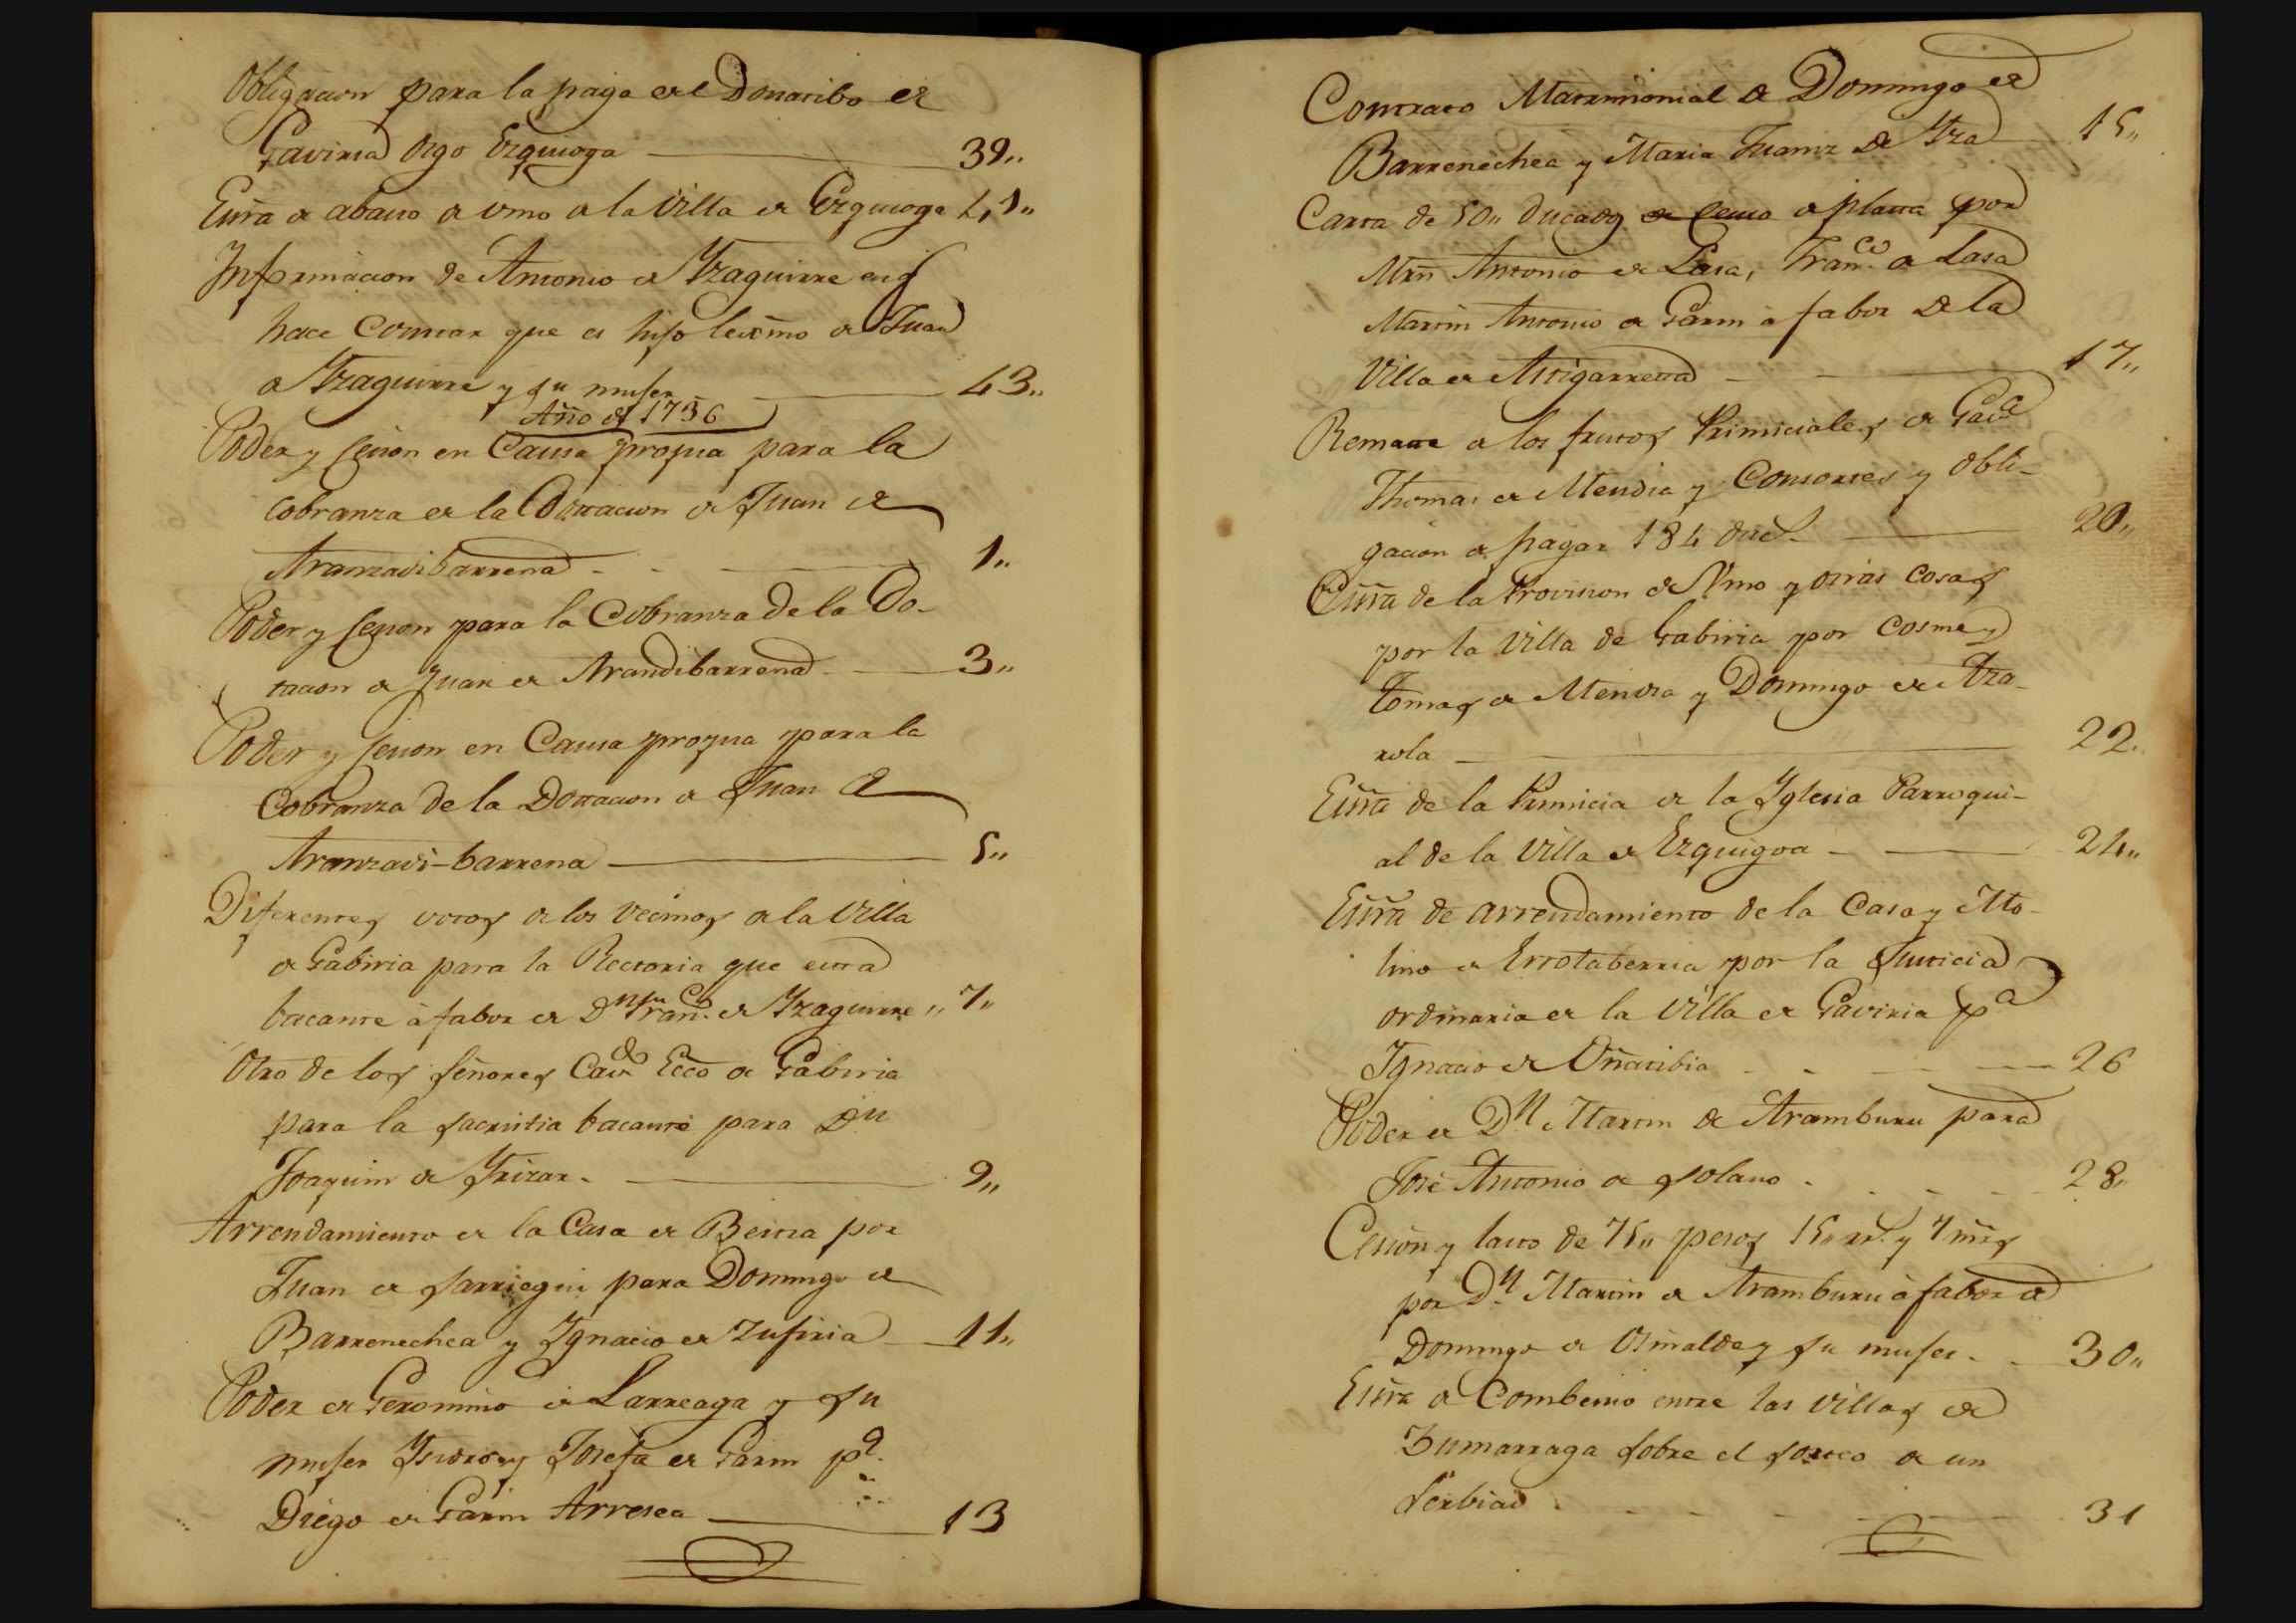 Obligacion para la paga de el Donatibo de
Gaviria digo Ezquioga 39"
Essra de abasto de vino de la Villa de Ezquioga 41"
Informacion de Antonio de Yzaguirre en q
hace Constar que es hijo lexmo de Juan
de Yzaguirre y su muger 43"
Año de 1736
Poder y sesion en Causa propia para la
cobranza de la Dottacion de Juan de
Aranzadibarrena 1"
Poder y sesion para la Cobranza de la Do-
tacion de Juan de Arandibarrena 3"
Poder y sesion en Causa propia para la
Cobranza de la Dottacion de Juan de
Aranzadi-barrena 5"
Diferentes votos de los Vecinos de la Villa
de Gabiria para la Rectoria que esta
bacante à fabor de Dn Franco de Yzaguirre 7"
Otro de los señores Cavdo Ecco de Gabiria
para la sacristia bacante para Dn
Joaquin de Yrizar 9"
Arrendamiento de la Casa de Beitia por
Juan de Sarriegui para Domingo de
Barrenechea y Ygnacio de Zufiria 11"
Poder de Geronimo de Larreaga y su
muger Ysidro y Josefa de Garin pa
Diego de Garin Arresea 13
Contrato Matrimonial de Domingo de
Barrenechea y Maria Juaniz de Yza 15"
Carta de 50" ducados de censo de platta por
Mrn Antonio de Lasa, Franco de Lasa
Martin Antonio de Garin à fabor de la
Villa de Astigarreta 17"
Remate de los frutos Primiciales de Gava
Thomas de Mendia y Consortes y obli-
gacion de pagar 184 ducs 20"
Essra de la Provision de Vino y otras cosas
por la Villa de Gabiria por Cosme y
Tomas de Mendia y Domingo de Aza-
rola 22"
Essra de la Primicia de la Yglesia Parroqui-
al de la Villa de Ezquigoa 24"
Essra de arrendamiento de la Casa y Mo-
lino de Errotaberria por la Justicia
ordinaria de la Villa de Gaviria pa
Ygnacio de Oñatibia 26
Poder de Dn Martin de Aramburu para
José Antonio de Solano 28"
Cesion y lasto de 75" pesos 15" rs y 7 mrs
por Dn Martin de Aramburu à fabor de
Domingo de Osinalde y su muger 30"
Essra de Combenio entre las Villas de
Zumarraga sobre el sorteo de un
Serbiad 31